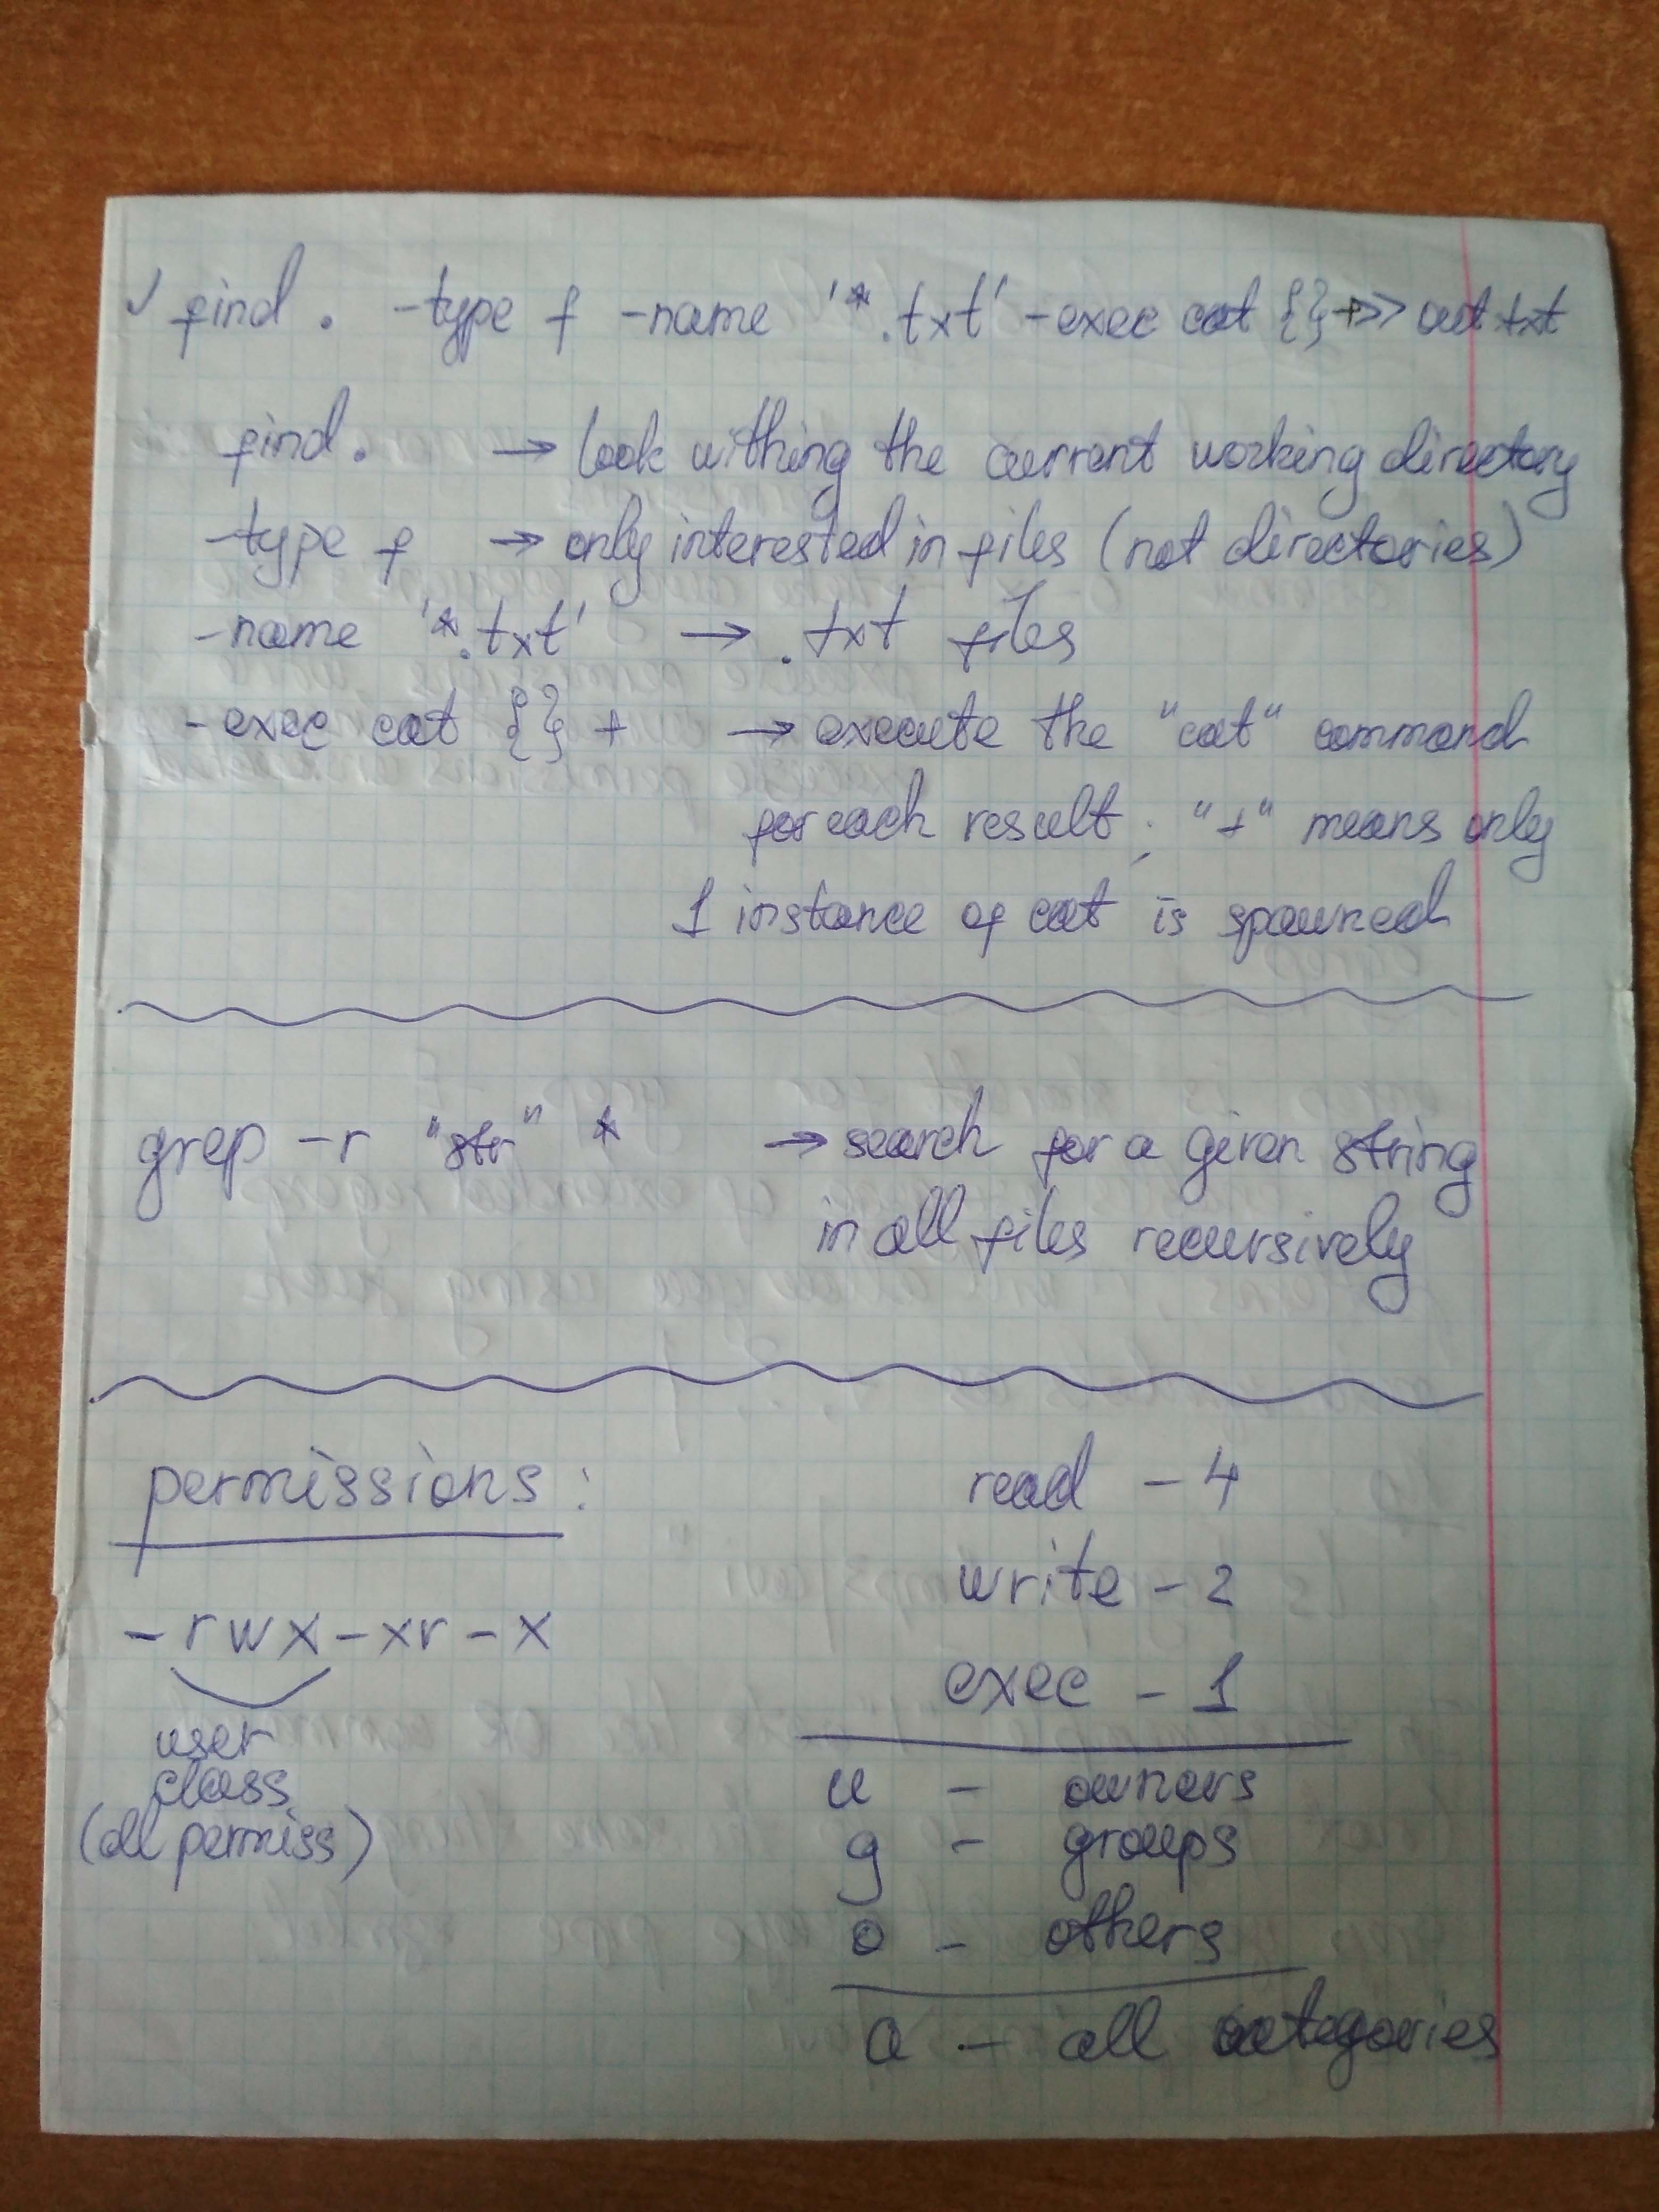 ✓ find . -type f -name '*.txt' -exec cat {} + >> out txt
find . → look withing the current working directory
-type f → only interested in files (not directories)
-name '*.txt' → .txt files
-exec cat {} + → execute the "cat" command
for each result; "+" means only
1 instance of cat is spawned
grep -r "str" * → search for a given string
in all files recursively
permissions:
read - 4
write - 2
- rwx - xr - x
exec - 1
user
class
(all permiss)
u - owners
g - groups
o - others
a - all categories